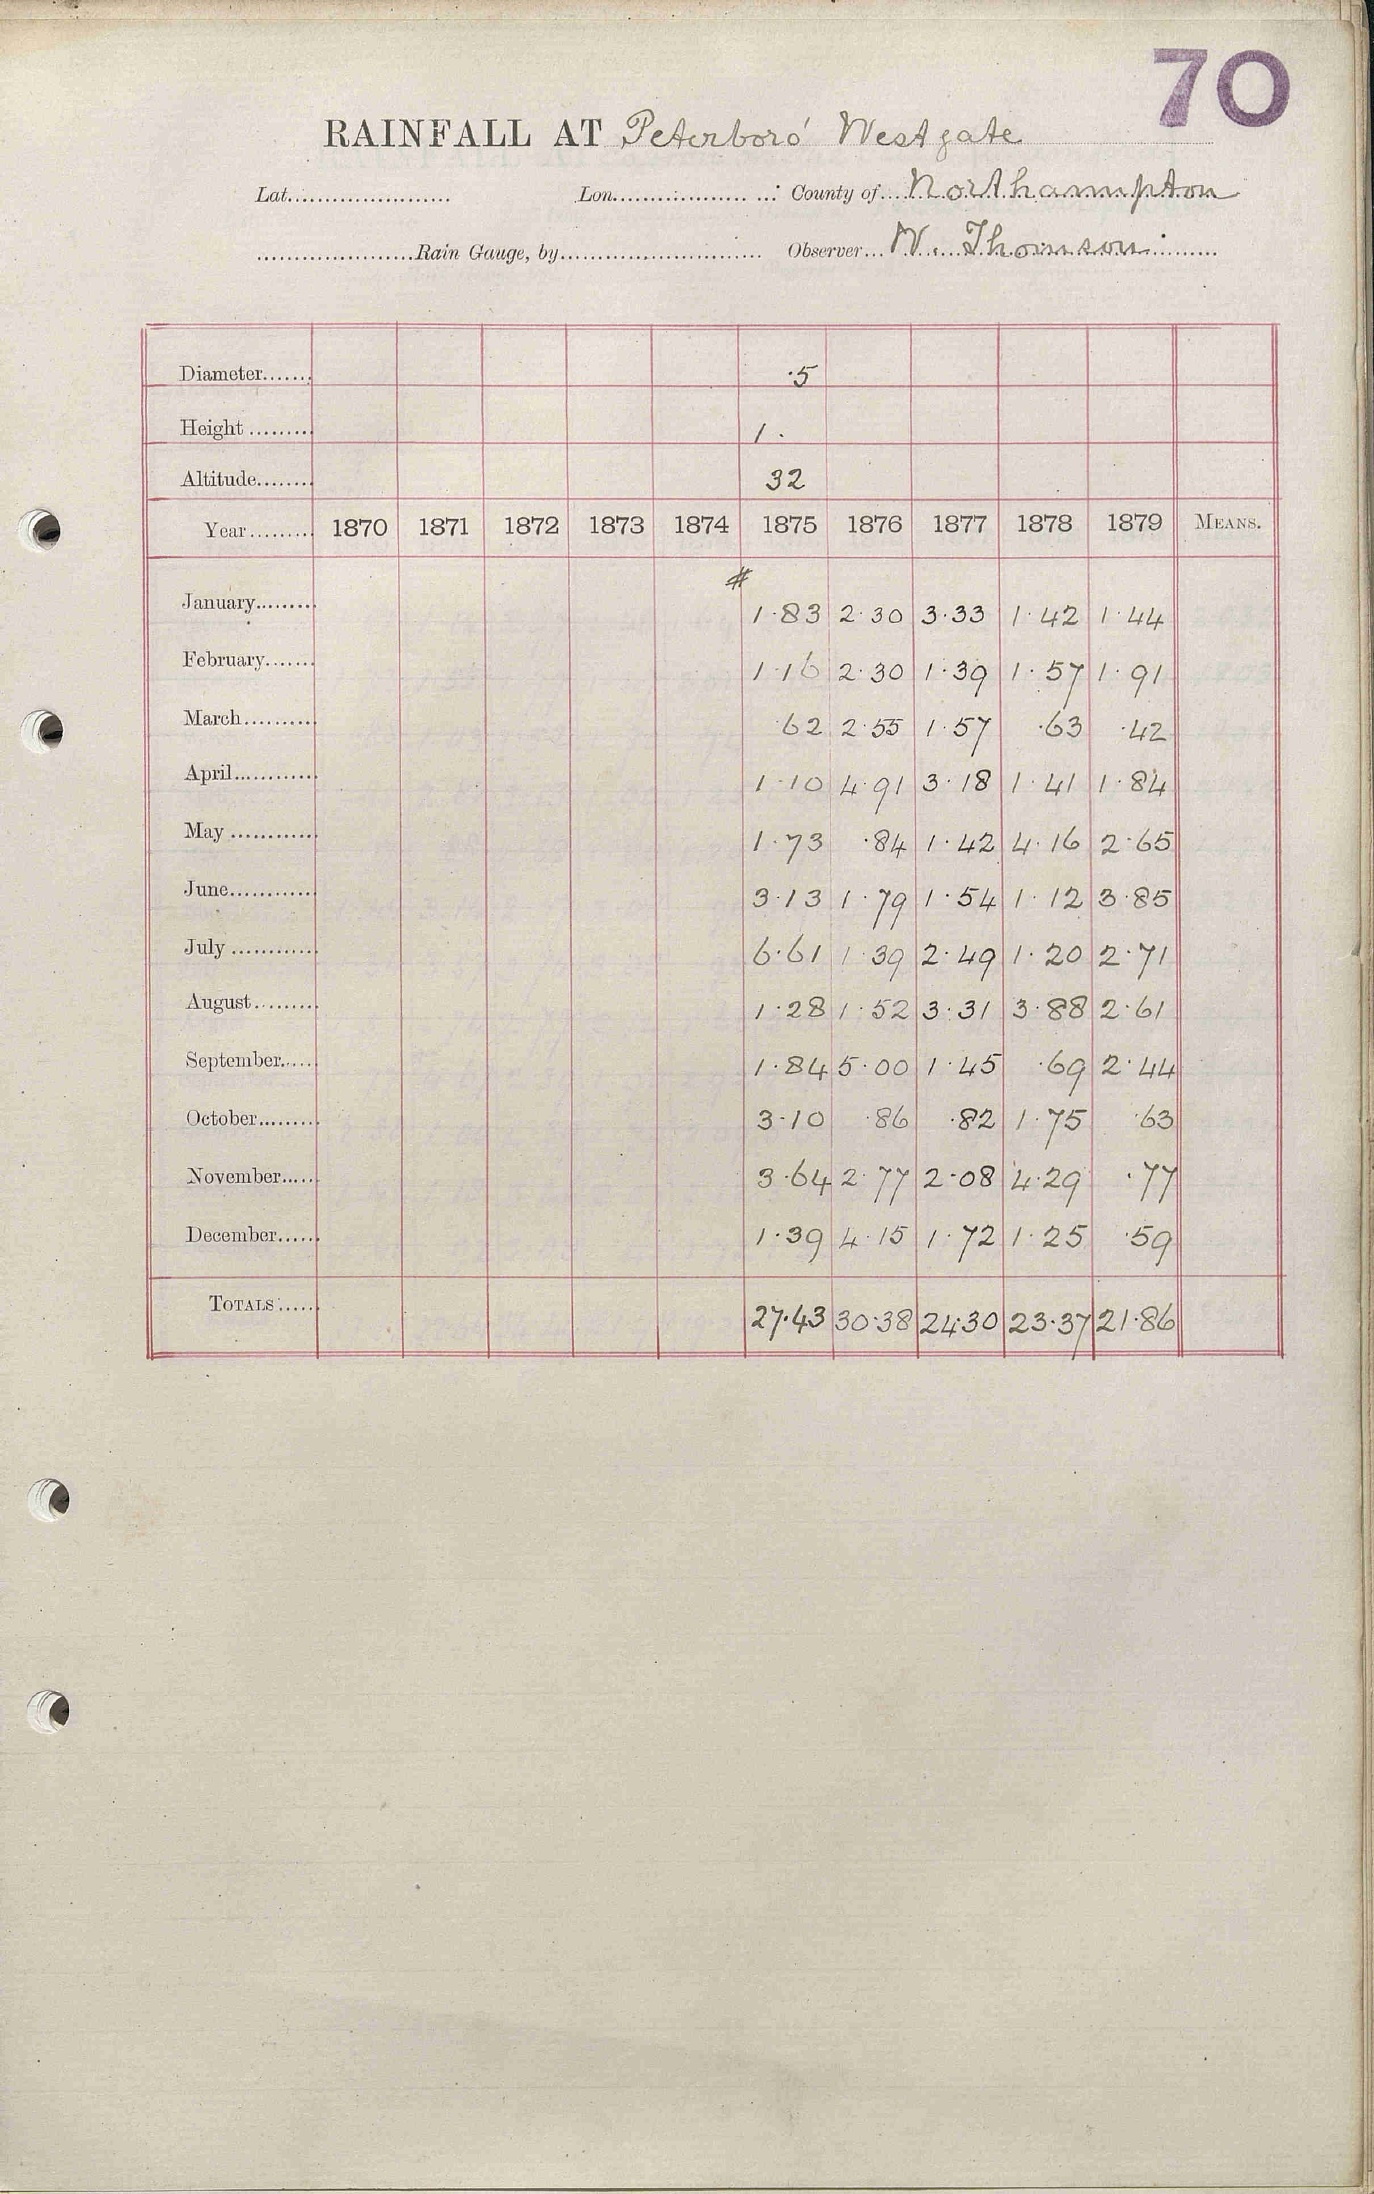 70
RAINFALL AT Peterboro' Westgate
Lat. Lon. County of Northampton
Rain Gauge, by Observer W. Thomson
Diameter ·5
Height 1·
Altitude 32
Year 1870 1871 1872 1873 1874 1875 1876 1877 1878 1879 MEANS.
#
January 1·83 2·30 3·33 1·42 1·44
February 1·16 2·30 1·39 1·57 1·91
March ·62 2·55 1·57 ·63 ·42
April 1·10 4·91 3·18 1·41 1·84
May 1·73 ·84 1·42 4·16 2·65
June 3·13 1·79 1·54 1·12 3·85
July 6·61 1·39 2·49 1·20 2·71
August 1·28 1·52 3·31 3·88 2·61
September 1·84 5·00 1·45 ·69 2·44
October 3·10 ·86 ·82 1·75 ·63
November 3·64 2·77 2·08 4·29 ·77
December 1·39 4·15 1·72 1·25 ·59
TOTALS 27·43 30·38 24·30 23·37 21·86